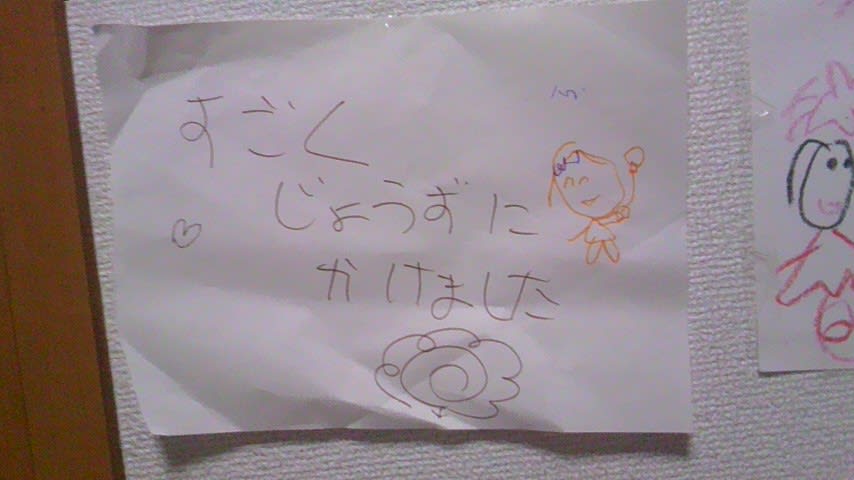 すごく
じょうずに
かけました